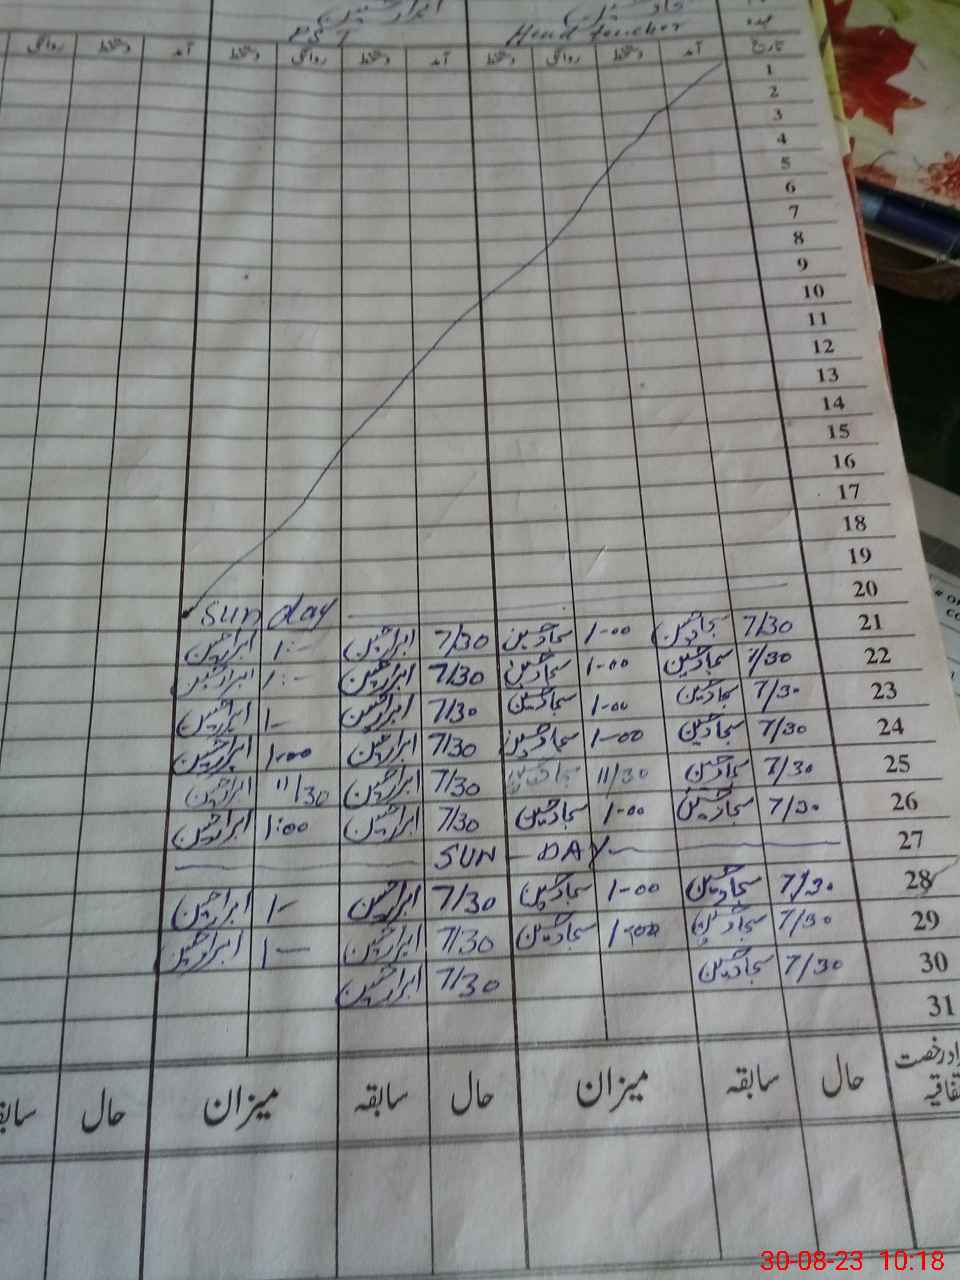 Head Teacher
تاریخ آمد دستخط روانگی دستخط آمد دستخط روانگی دستخط آمد دستخط روانگی
1
2
3
4
5
6
7
8
9
10
11
12
13
14
15
16
17
18
19
20 Sunday
21 7/30 سجاد حسین 1-00 سجاد حسین 7/30 ابرار حسین 1:- ابرار حسین
22 7/30 سجاد حسین 1-00 سجاد حسین 7/30 ابرار حسین 1:- ابرار حسین
23 7/30 سجاد حسین 1-00 سجاد حسین 7/30 ابرار حسین 1- ابرار حسین
24 7/30 سجاد حسین 1-00 سجاد حسین 7/30 ابرار حسین 1:00 ابرار حسین
25 7/30 سجاد حسین 11/30 سجاد حسین 7/30 ابرار حسین 11/30 ابرار حسین
26 7/30 سجاد حسین 1-00 سجاد حسین 7/30 ابرار حسین 1:00 ابرار حسین
27 SUN - DAY
28 7/30 سجاد حسین 1-00 سجاد حسین 7/30 ابرار حسین 1- ابرار حسین
29 7/30 سجاد حسین 1-00 سجاد حسین 7/30 ابرار حسین 1- ابرار حسین
30 7/30 سجاد حسین 7/30 ابرار حسین
31
حال سابقہ میزان حال سابقہ میزان حال
30-08-23 10:18